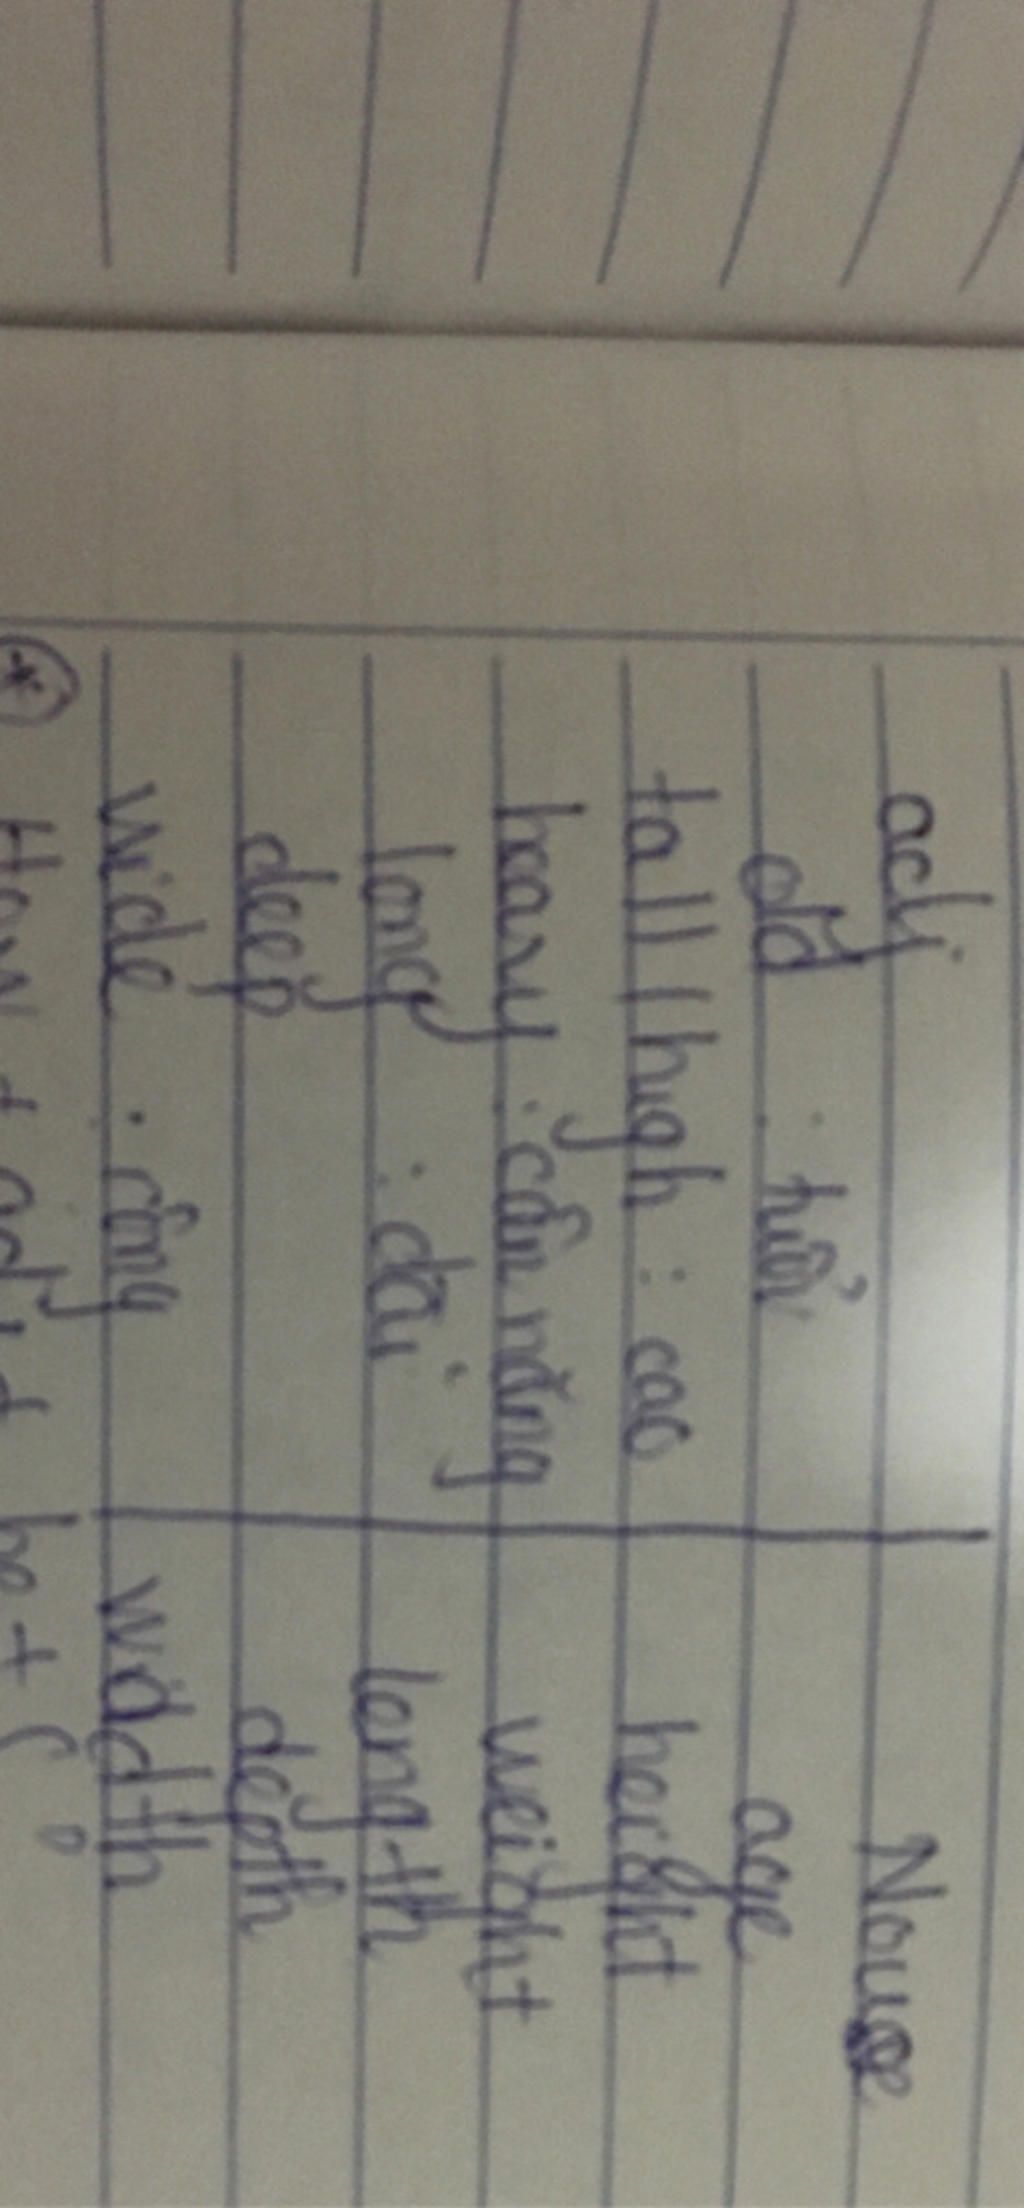 adj. Noun
old : tuổi age
tall / high : cao height
heavy : cân nặng weight
long : dài length
deep depth
wide : rộng width
* How + adj +